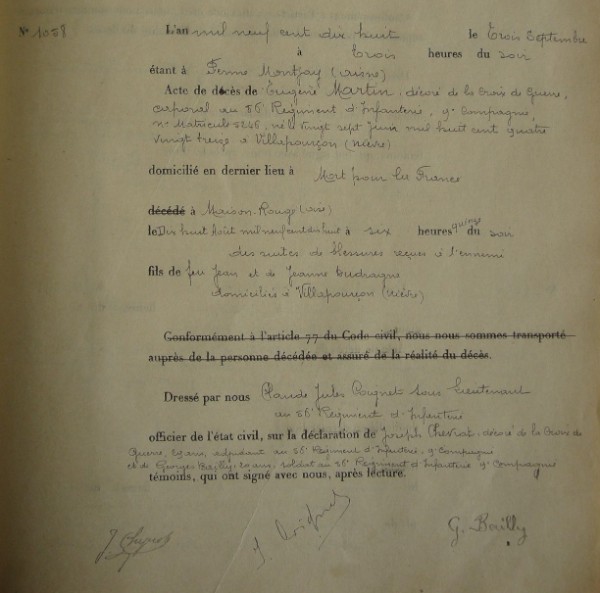 N° 1058
L'an mil neuf cent dix huit le Trois Septembre
à Trois heures du soir
étant à Ferme Montjay (aisne)
Acte de décès de Eugène Martin, décoré de la Croix de Guerre,
caporal au 56e Regiment d'Infanterie, 9e Compagnie,
n° Matricule 5246, né le vingt sept Juin mil huit cent quatre
vingt treize à Villapourçon (nièvre)
domicilié en dernier lieu à Mort pour la France
décédé à Maison-Rouge (oise)
le Dix huit Août mil neuf cent dix huit à six heures quinze du soir
des suites de blessures reçues à l'ennemi
fils de feu Jean et de Jeanne
domiciliés à Villapourçon (nièvre)
Conformément à l'article 77 du Code civil, nous nous sommes transporté
auprès de la personne décédée et assuré de la réalité du décès.
Dressé par nous Claude Jules sous Lieutenant
au 56e Regiment d'Infanterie
officier de l'état civil, sur la déclaration de Joseph Chevrat, décoré de la Croix de
Guerre, 29 ans, adjudant au 56e Regiment d'Infanterie, 9e Compagnie
et de Georges Bailly, 29 ans, soldat au 56e Regiment d'Infanterie 9e Compagnie
témoins, qui ont signé avec nous, après lecture.
G. Bailly